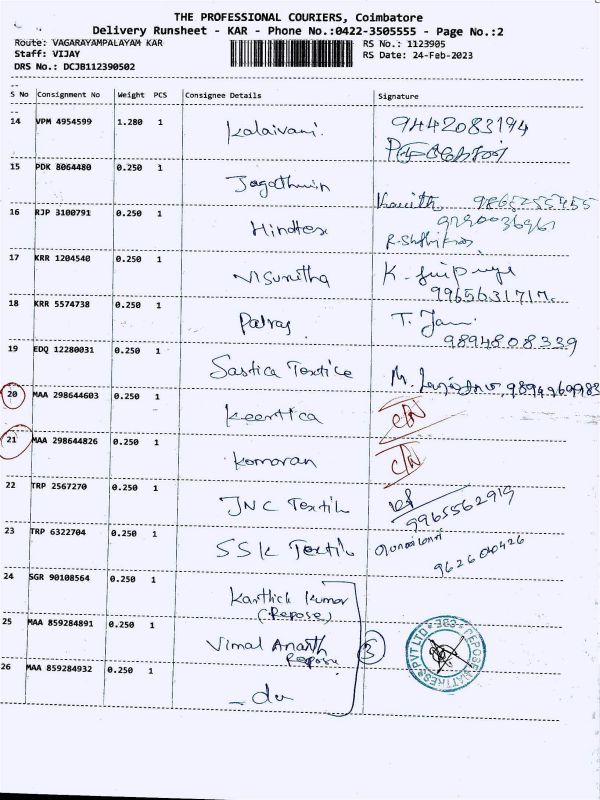 THE PROFESSIONAL COURIERS, Coimbatore
Delivery Runsheet - KAR - Phone No.:0422-3505555 - Page No.:2
Route: VAGARAYAMPALAYAM KAR RS No.: 1123905
Staff: VIJAY RS Date: 24-Feb-2023
DRS No.: DCJB112390502
S No Consignment No Weight PCS Consignee Details Signature
14 VPM 4954599 1.280 1 Kalaivani. 9442083194
15 PDK 8064480 0.250 1
9865255455
16 RJP 3100791 0.250 1 Hindtex
17 KRR 1204540 0.250 1 Visunitha K.
9965631717.
18 KRR 5574738 0.250 1 Patras T. Jani
9894808339
19 EDQ 12280031 0.250 1 Sastica Textice M.
20 MAA 298644603 0.250 1 Keertica C/N
21 MAA 298644826 0.250 1 Komaran C/N
22 TRP 2567270 0.250 1 JNC Textil
9965562919
23 TRP 6322704 0.250 1 SSK Textil
24 SGR 90108564 0.250 1 Karthick Kumar
(Repose)
25 MAA 859284891 0.250 1 Vimal Ananth 3
Repose
26 MAA 859284932 0.250 1 - do
PVT LTD